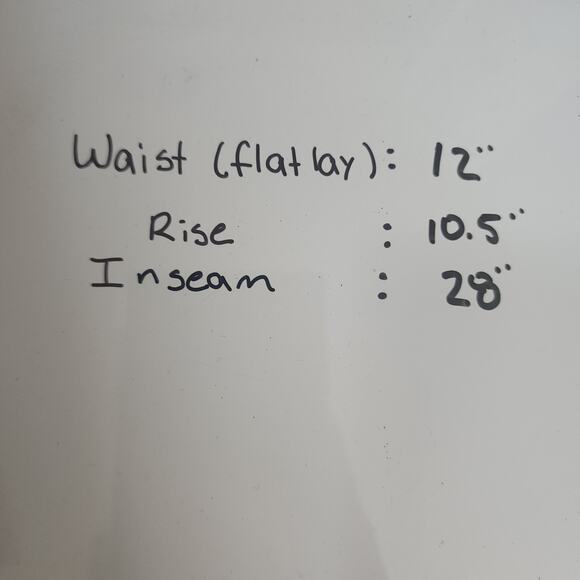 Waist (flat lay): 12"
Rise : 10.5"
Inseam : 28"